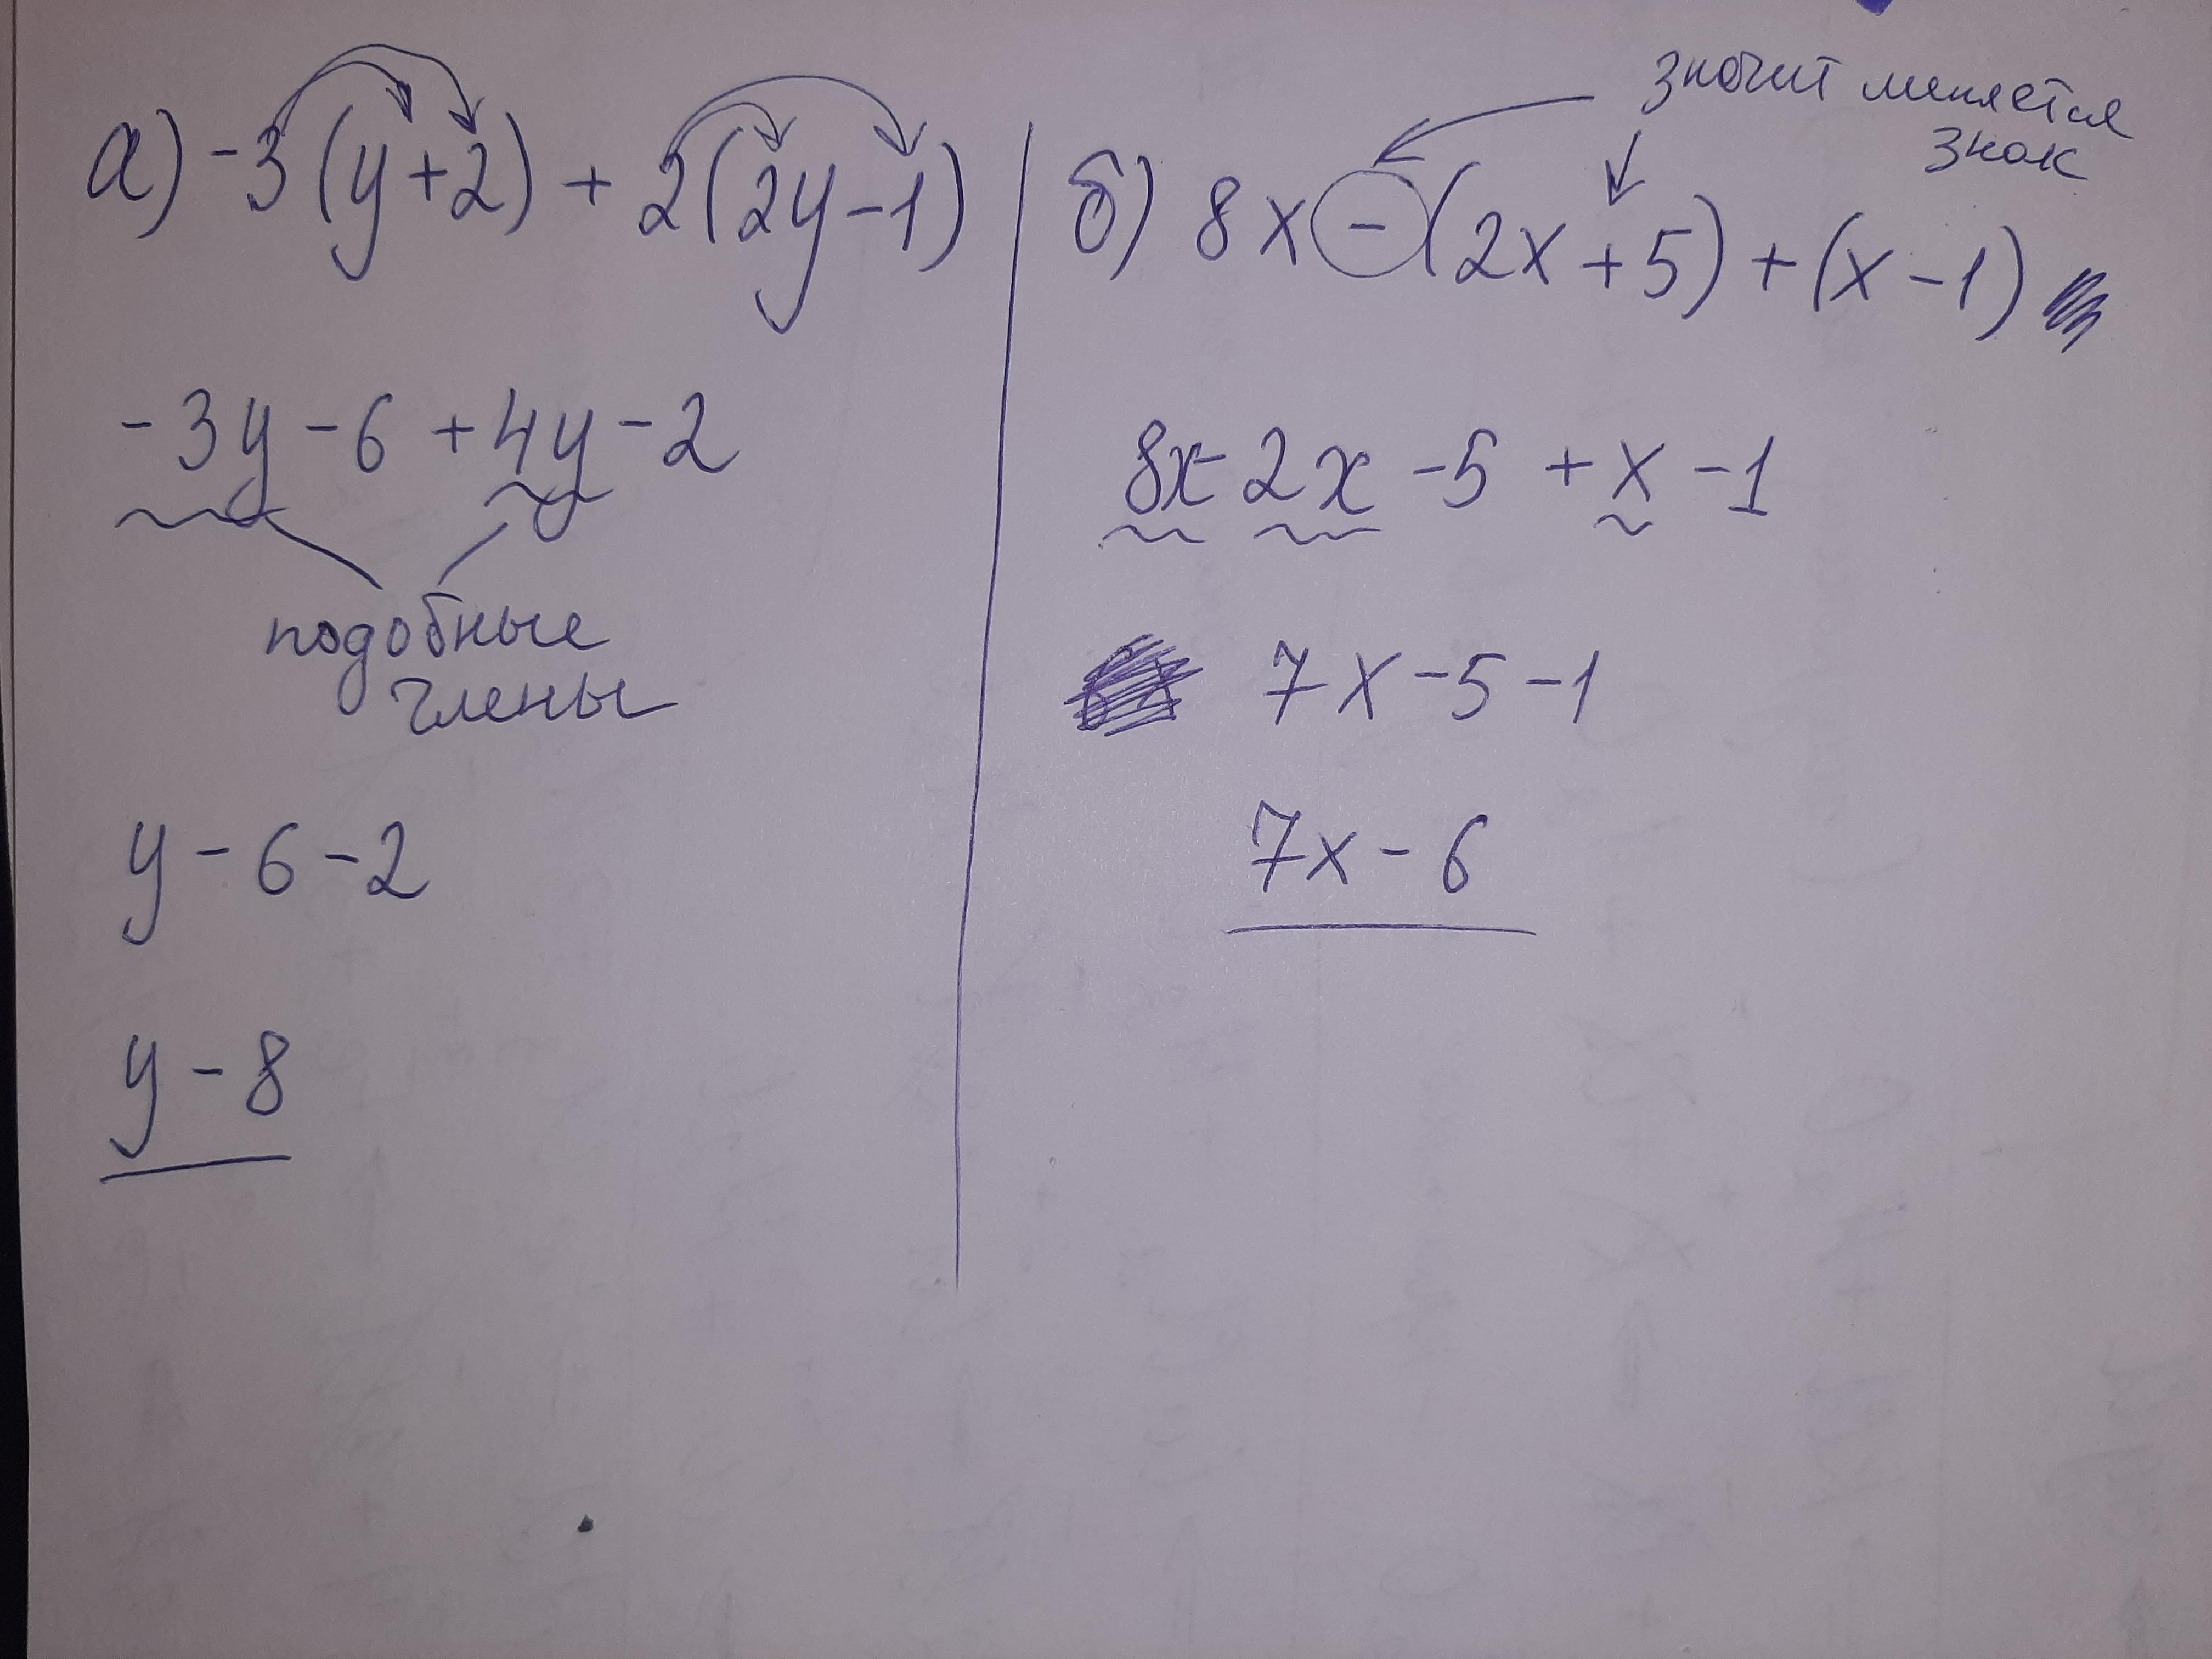 а) -3(y+2) + 2(2y-1)
-3y - 6 + 4y - 2
подобные
члены
y - 6 - 2
y - 8
значит меняется
знак
б) 8x - (2x + 5) + (x - 1)
8x - 2x - 5 + x - 1
7x - 5 - 1
7x - 6